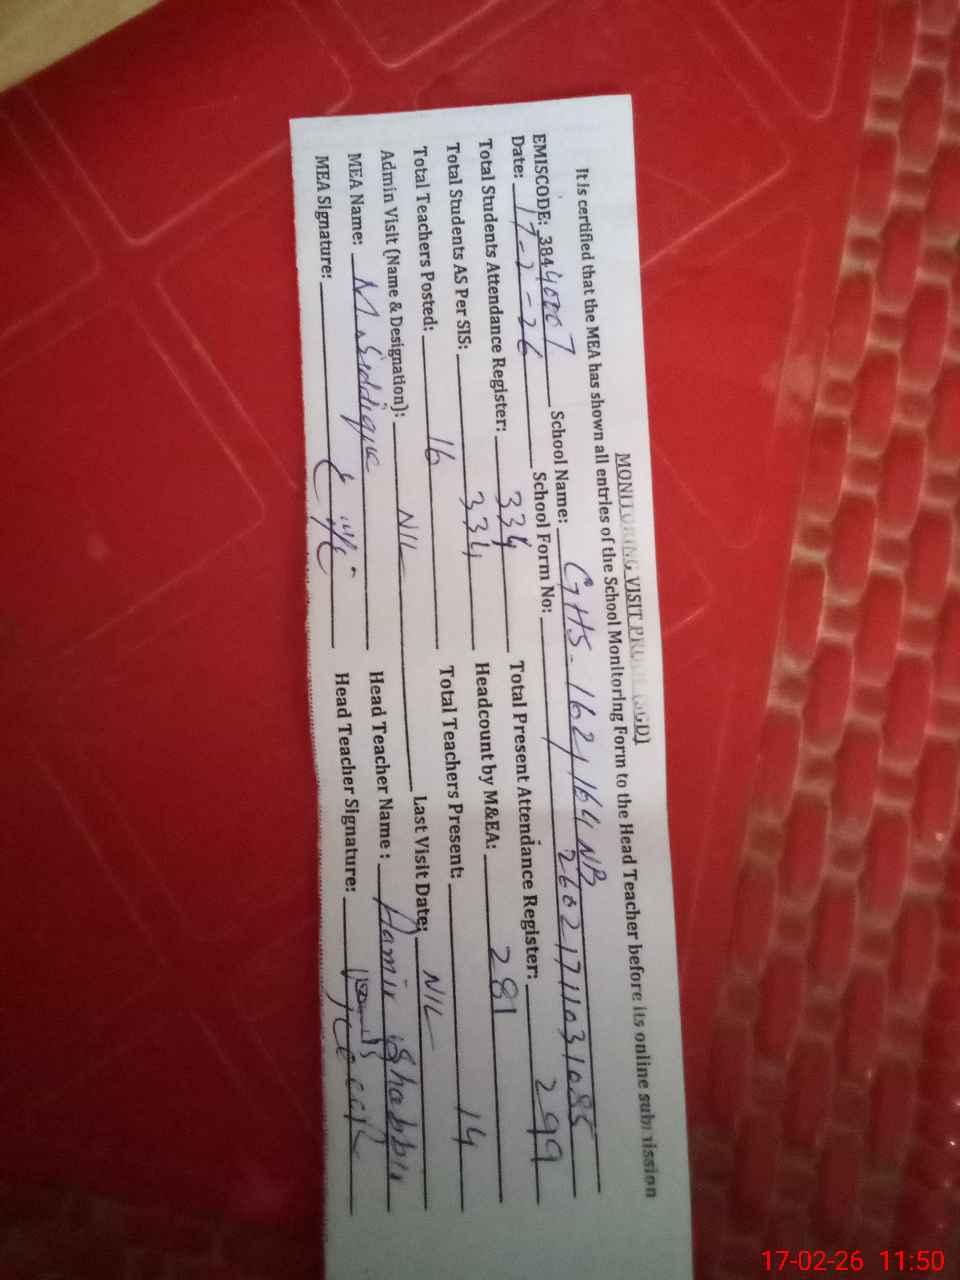 MONITORING VISIT PROOF (SGD)
It is certified that the MEA has shown all entries of the School Monitoring Form to the Head Teacher before its online submission
EMISCODE: 38440007 School Name: GHS-162,164 NB
Date: 17-2-26 School Form No: 26021711031085
Total Students Attendance Register: 334 Total Present Attendance Register: 299
Total Students AS Per SIS: 334 Headcount by M&EA: 281
Total Teachers Posted: 16 Total Teachers Present: 14
Admin Visit (Name & Designation): NIL Last Visit Date: NIL
MEA Name: M. Siddique Head Teacher Name: Aamir Shabbir
MEA Signature: Head Teacher Signature:
17-02-26 11:50